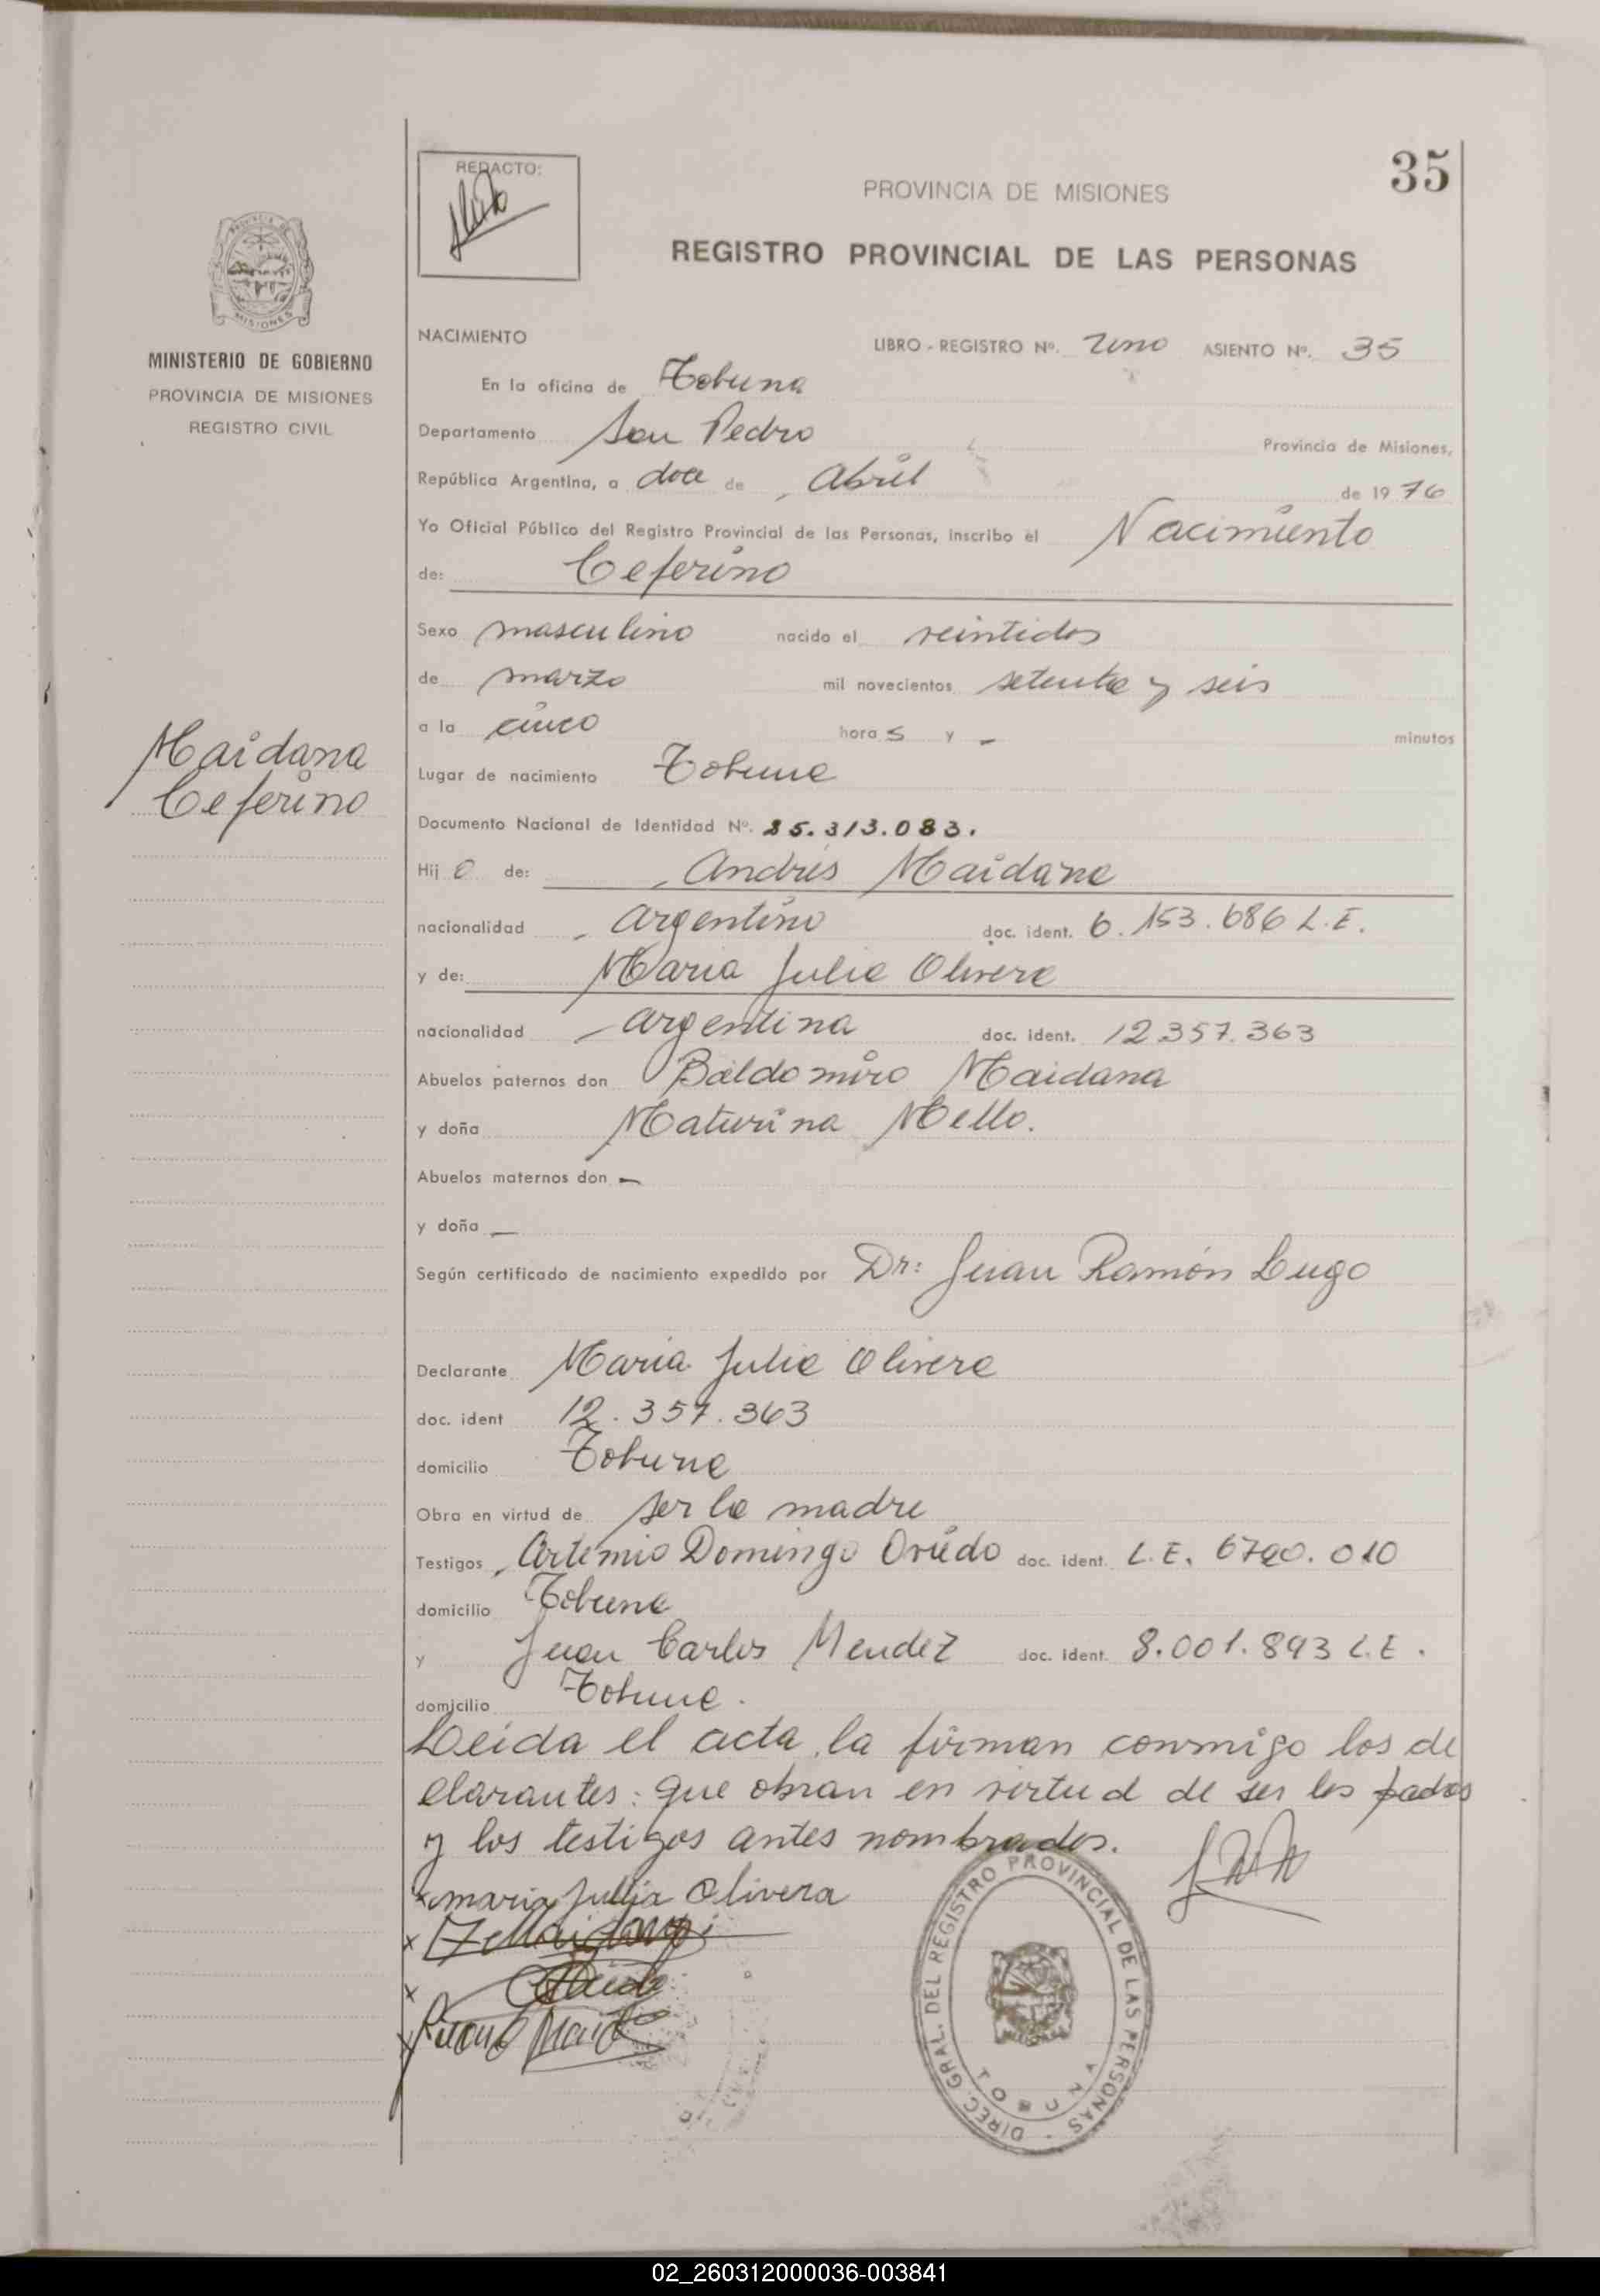 35
REDACTO:
PROVINCIA DE MISIONES
REGISTRO PROVINCIAL DE LAS PERSONAS
MISIONES
MINISTERIO DE GOBIERNO
PROVINCIA DE MISIONES
REGISTRO CIVIL
NACIMIENTO
LIBRO - REGISTRO Nº. Uno ASIENTO Nº. 35
En la oficina de Tobuna
Departamento San Pedro Provincia de Misiones,
República Argentina, a doce de Abril de 1976
Yo Oficial Público del Registro Provincial de las Personas, inscribo el Nacimiento
de: Ceferino
Sexo masculino nacido el veintidos
de marzo mil novecientos setenta y seis
a la cinco horas y - minutos
Maidana
Ceferino
Lugar de nacimiento Tobuna
Documento Nacional de Identidad Nº. 25.313.083.
Hijo de: Andrés Maidana
nacionalidad Argentino doc. ident. 6.153.686 L.E.
y de: Maria Julia Olivera
nacionalidad Argentina doc. ident. 12.357.363
Abuelos paternos don Baldomiro Maidana
y doña Maturina Mello.
Abuelos maternos don -
y doña -
Según certificado de nacimiento expedido por Dr: Juan Ramón Lugo
Declarante Maria Julia Olivera
doc. ident 12.357.363
domicilio Tobuna
Obra en virtud de ser la madre
Testigos Artemio Domingo Oviedo doc. ident. L.E. 6790.010
domicilio Tobuna
y Juan Carlos Mendez doc. ident. 8.001.893 L.E.
domicilio Tobuna.
Leida el acta, la firman conmigo los de
clarantes: que obran en virtud de ser los padres
y los testigos antes nombrados.
x maria Jullia Olivera
DIREC. GRAL. DEL REGISTRO PROVINCIAL DE LAS PERSONAS -
TOBUNA
02_260312000036-003841